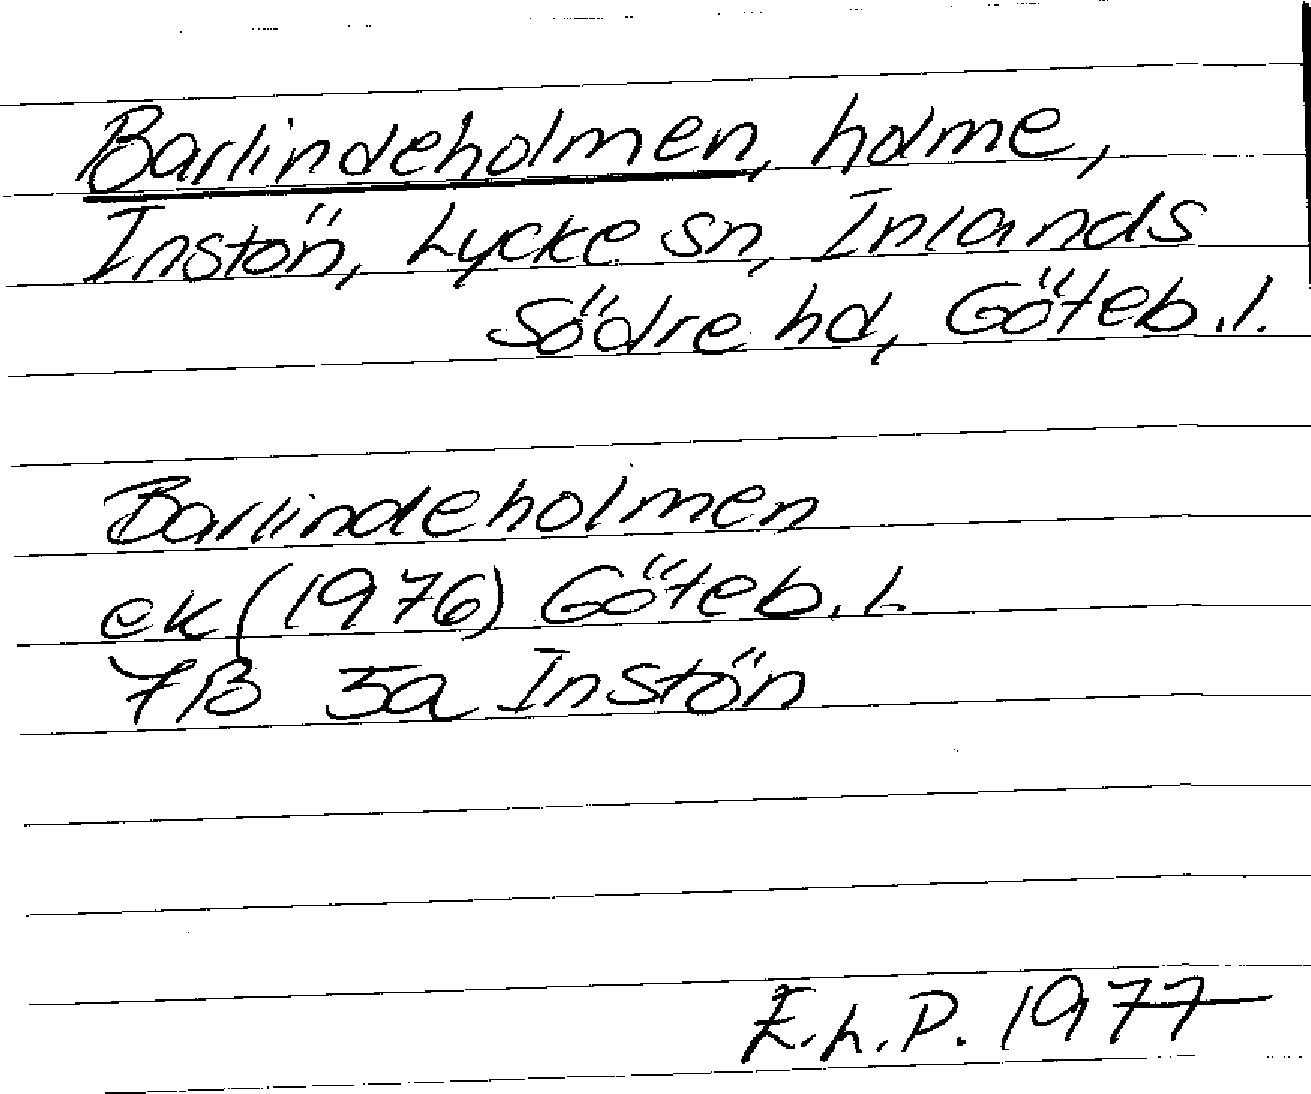 Barlindeholmen, holme,
Instön, Lycke sn, Inlands
Södre hd, Göteb.l.
Barlindeholmen
ek (1976) Göteb.l.
7B 5a Instön
E.L.P. 1977